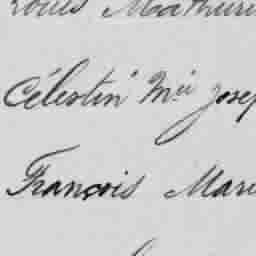 Louis Mathuri
Célestin Mie Josep
François Mari